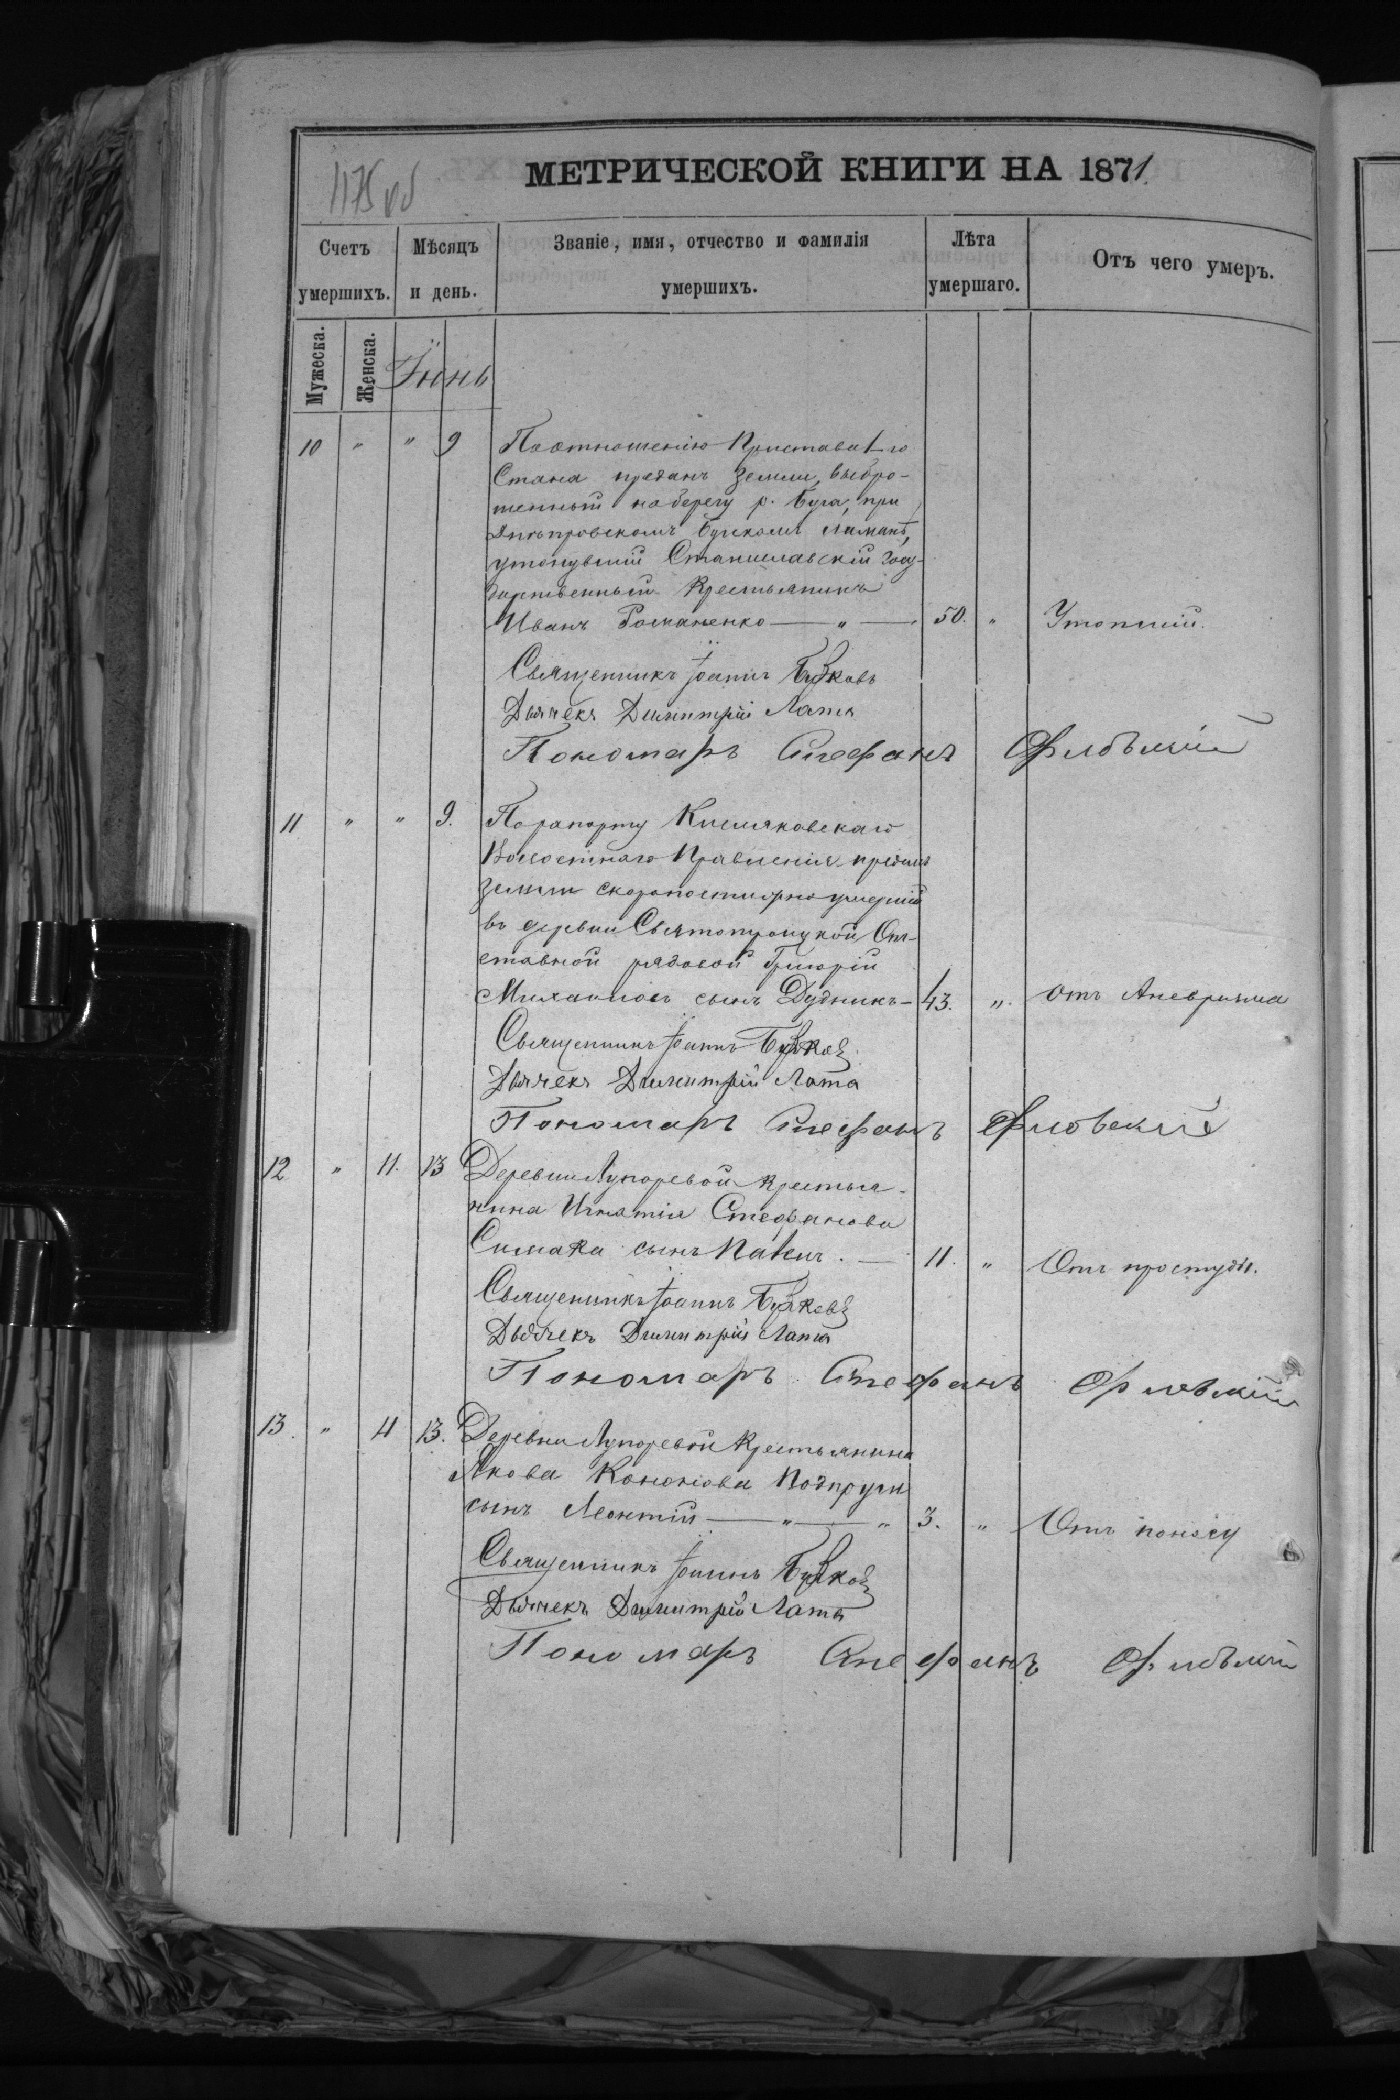 1175 об
МЕТРИЧЕСКОЙ КНИГИ НА 1871.
Счетъ умершихъ.
Мѣсяцъ и день.
Званіе, имя, отчество и фамилія умершихъ.
Лѣта умершаго.
Отъ чего умеръ.
Мужеска.
Женска.
Іюнь
10 " " 9 По отношенію Пристава 1 го
Стана преданъ земли, выбро-
шенный на берегу р. Буга, при
Днѣпровскомъ Бугскомъ лиманѣ,
утонувшій Станиславскій Госу-
дарственный Крестьянинъ
Иванъ Романенко — " — 50. " Утопшій.
Священникъ Іоаннъ
Дьячекъ Димитрій Лата
Пономарь Стефанъ
11 " " 9. По рапорту Кисляковскаго
Волостнаго Правленія преданъ
земли скоропостижно умершій
въ деревни Святотроицкой От-
ставной рядовой Григорій
Михайловъ сынъ Дудникъ — 43. " отъ Аневризма
Священникъ Іоаннъ
Дьячекъ Димитрій Лата
Пономарь Стефанъ
12 " 11. 13 Деревни Лупаревой Крестья-
нина Игнатія Стефанова
Симака сынъ Павелъ. — 11. " Отъ простуды.
Священникъ Іоаннъ
Дьячекъ Димитрій Лата
Пономарь Стефанъ
13. " 11 13. Деревни Лупаревой Крестьянина
Якова Кононова Подпруги
сынъ Леонтій — " — " 3. " Отъ поносу
Священникъ Іоаннъ
Дьячекъ Димитрій Лата
Пономарь Стефанъ